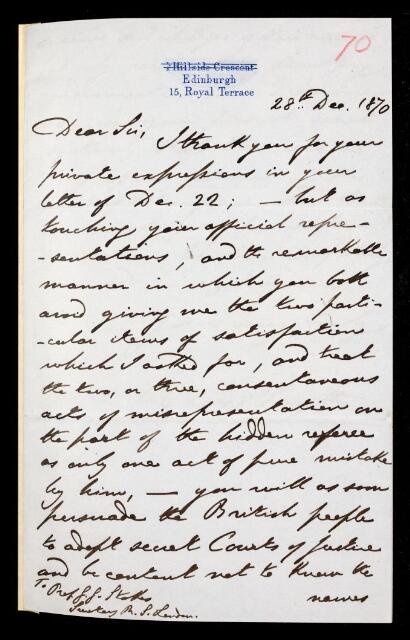 70
2 Hillside Crescent
Edinburgh
15, Royal Terrace
28th Dec. 1870
Dear Sir,
I thank you for your
private expressions in your
letter of Dec. 22; — but as
touching your official repre-
-sentations, and the remarkable
manner in which you both
avoid giving me the two parti-
-cular items of satisfaction
which I asked for, and treat
the two, or three, consentaneous
acts of misrepresentation on
the part of the hidden referee
as only one act of pure mistake
by him, — you will as soon
persuade the British people
to adopt secret Courts of Justice
and be content not to know the
names
To Prof. G. G. Stokes
Secretary R. S. London.